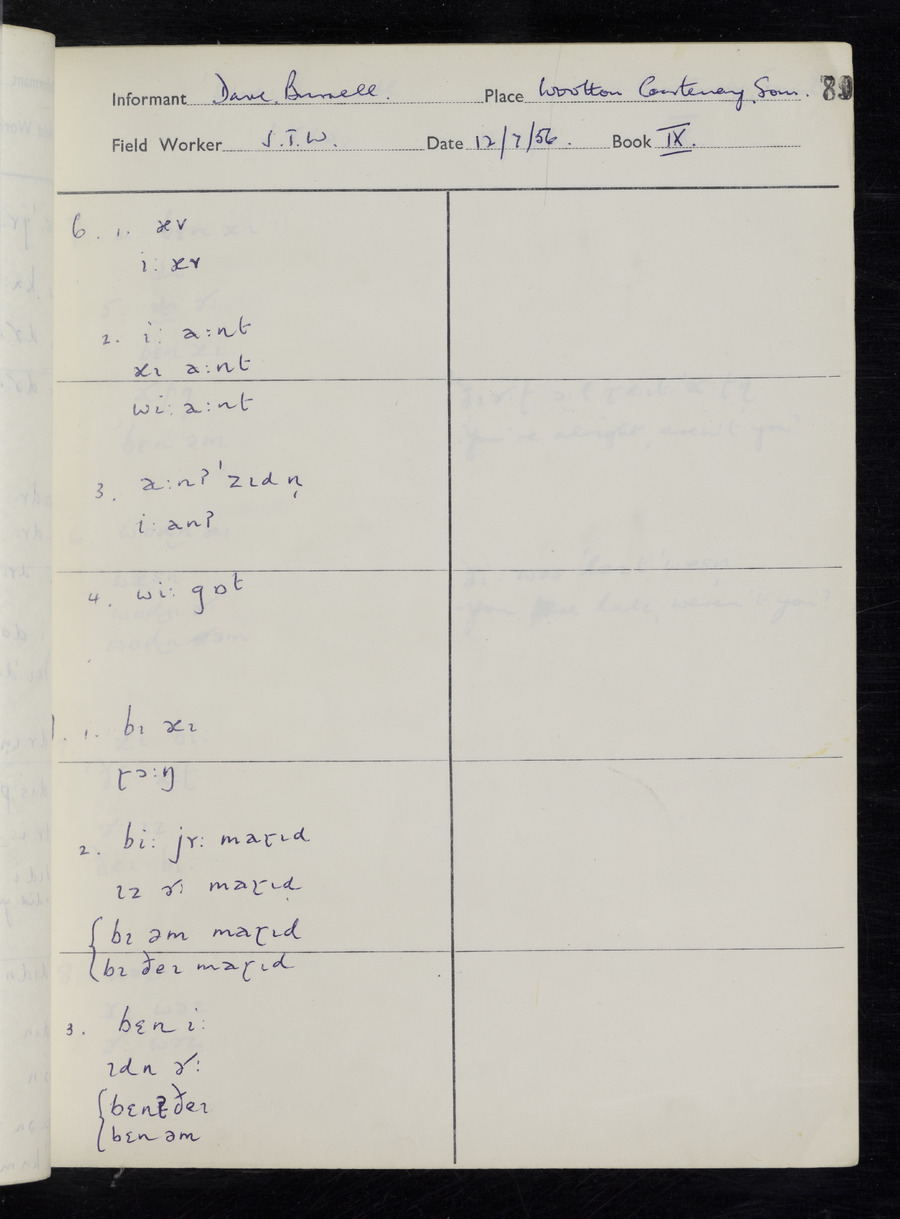 Informant Dave Burnell. Place Wootton Courtenay, Som. 80
Field Worker S.T.W. Date 12/7/56. Book IX.
6. 1. æv
i: æv
2. i: a:nt
æɪ a:nt
wi: a:nt
3. a:nʔ ˈzɪdn̩
i: anʔ
4. wi: gɒt
1. bɪ æɪ
ɽɔ:ŋ
2. bi: jɤ: maɽɪd
ɪz ɤ: maɽɪd
bɪ əm maɽɪd
bɪ ðeɪ maɽɪd
3. bɛn i:
ɪdn ɤ:
bɛnt ðeɪ
bɛn əm